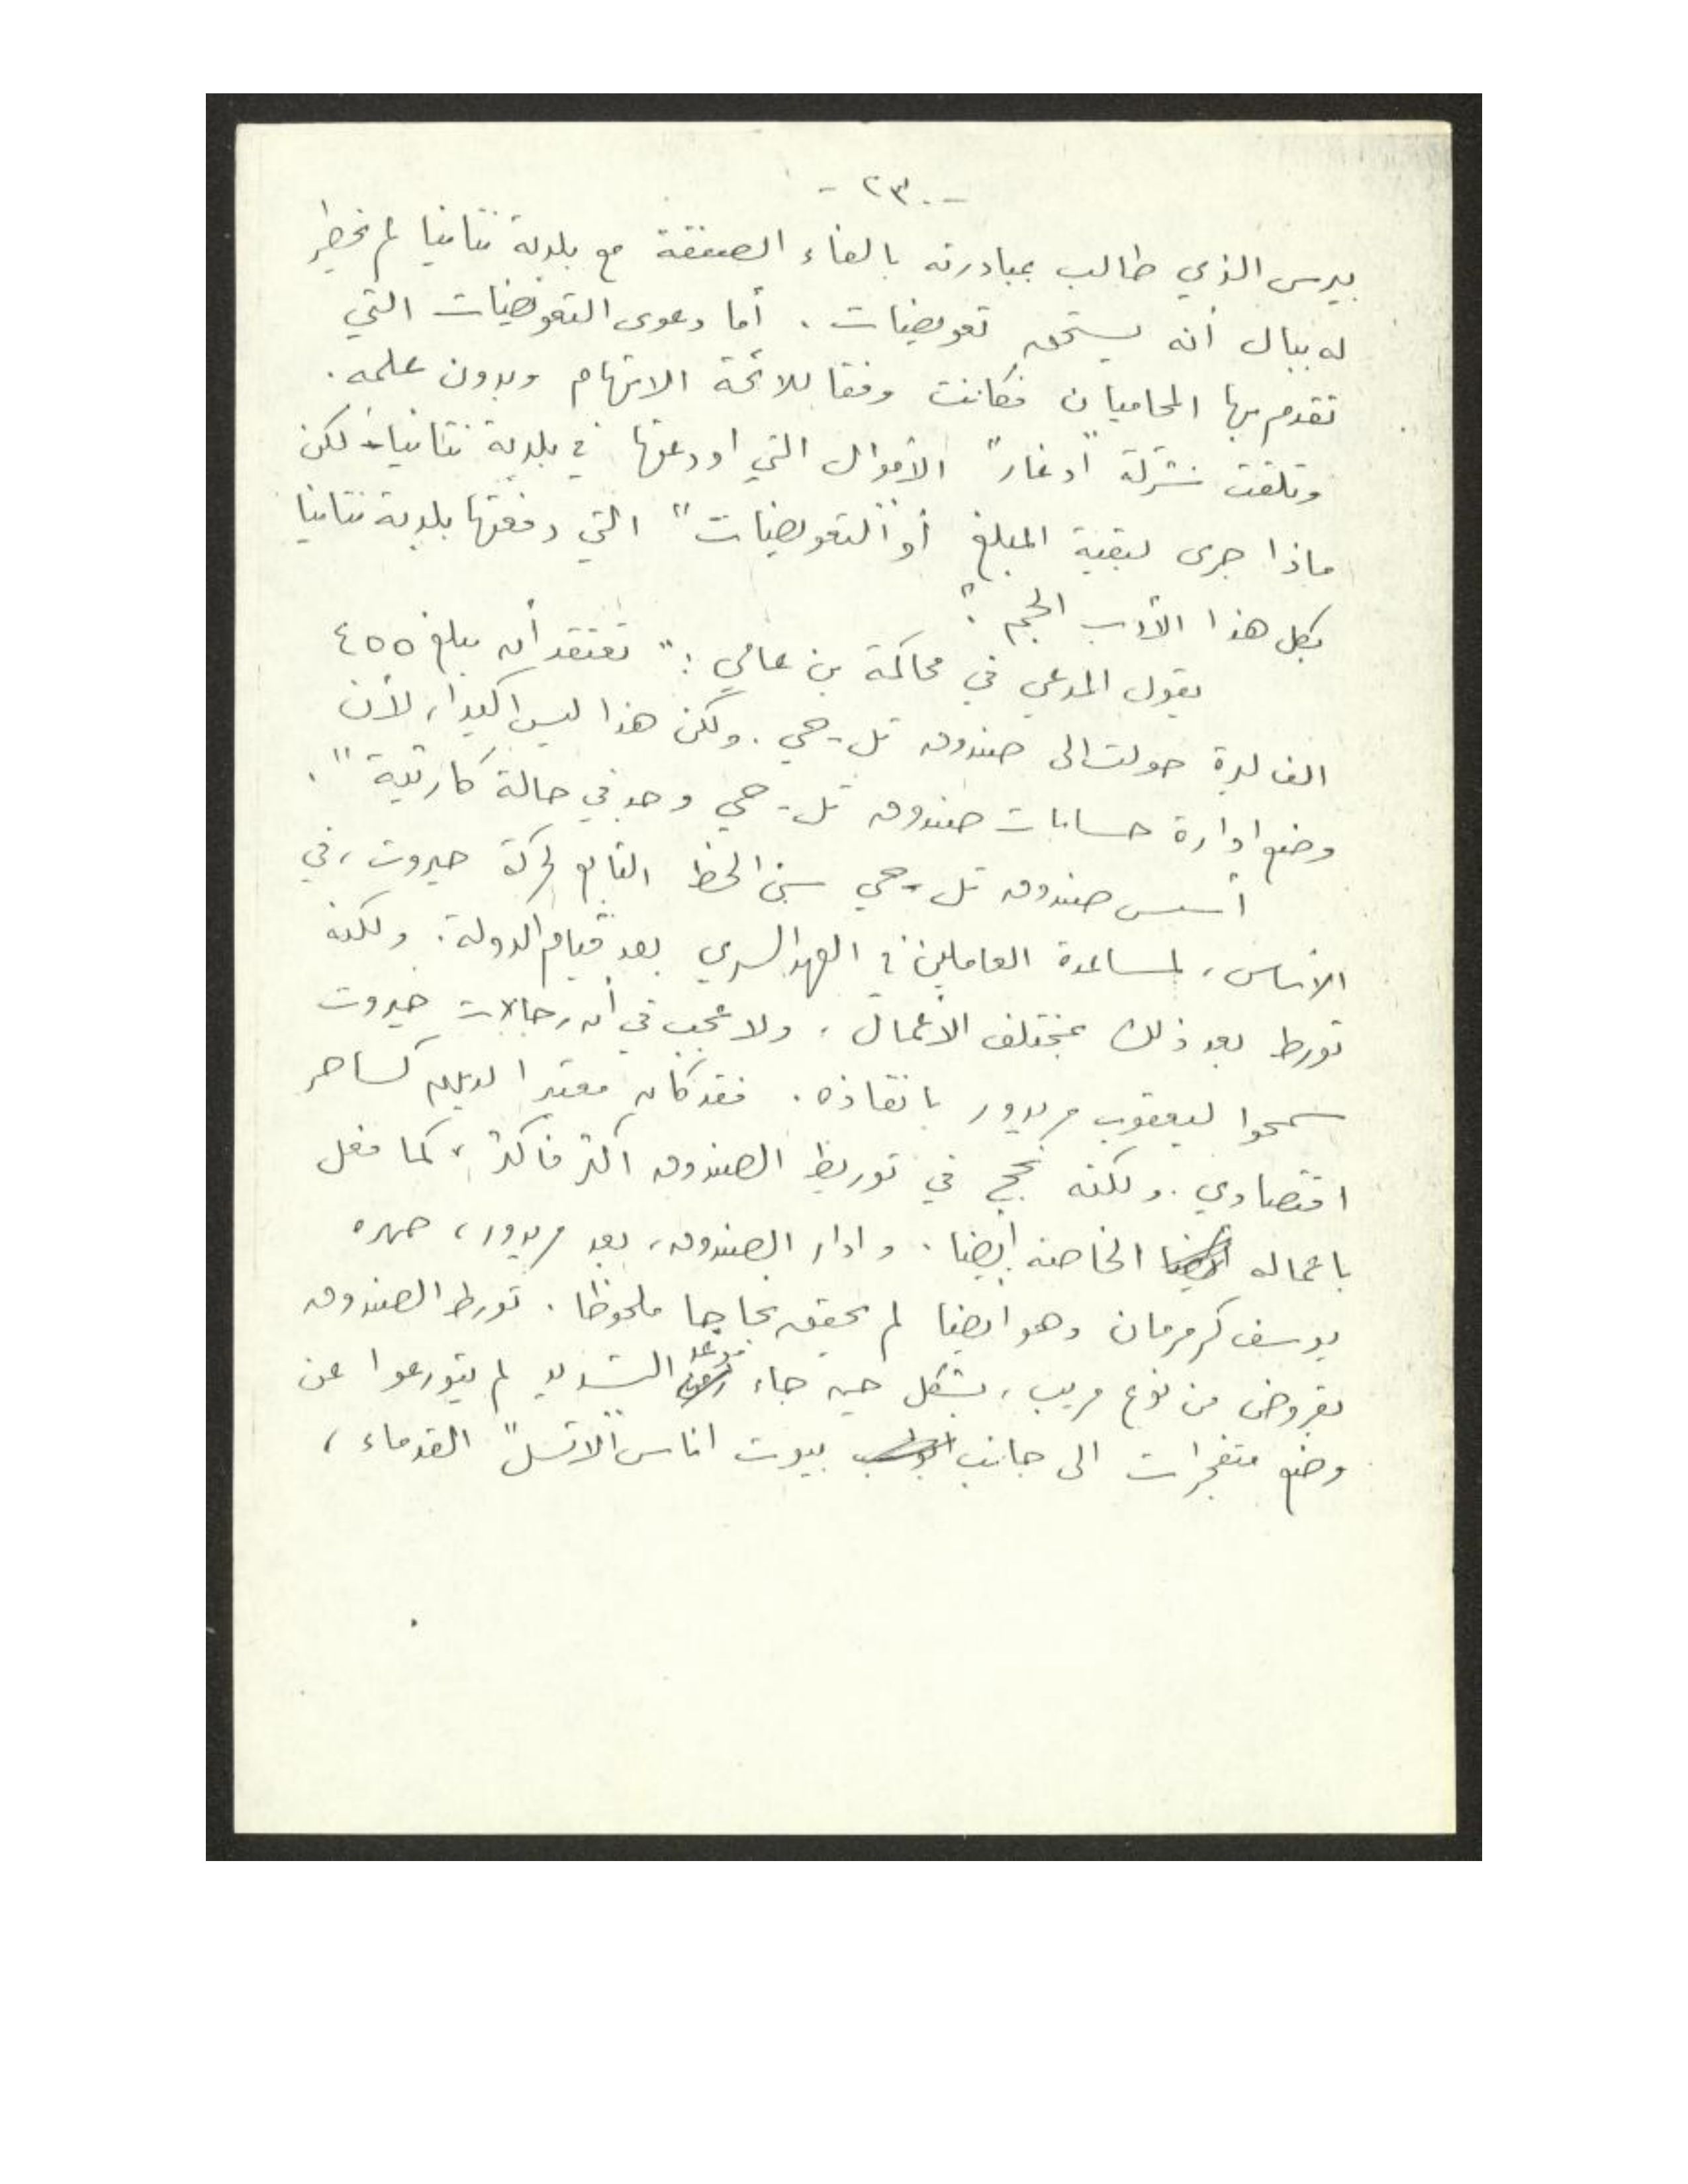 - ٢٣٠ -
بيرس الذي طالب بمبادرته بالغاء الصفقة مع بلدية نتانيا لم يخطر
له ببال أنه يستحق تعويضات . أما دعوى التعويضات التي
تقدم بها المحاميان فكانت وفقا للائحة الاتهام وبدون علمه .
وتلقت شركة "ادغار" الأموال التي اودعتها في بلدية نتانيا - لكن
ماذا جرى لبقية المبلغ أو "التعويضات" التي دفعتها بلدية نتانيا
بكل هذا الأدب الجم ؟
يقول المدعي في محاكمة بن عامي : " نعتقد أن مبلغ ٤٥٥
الف ليرة حولت الى صندوق تل - حي . ولكن هذا ليس اكيدا ، لأن
وضع ادارة حسابات صندوق تل - حي وجد في حالة كارثية " .
أسس صندوق تل - حي سيئ الحظ التابع لحركة حيروت ، في
الاساس ، لمساعدة العاملين في العهد السري بعد قيام الدولة . ولكنه
تورط بعد ذلك بمختلف الأعمال . ولا عجب في أن رجالات حيروت
سمحوا ليعقوب مريدور بانقاذه . فقد كان معتبرا لديهم كساحر
اقتصادي . ولكنه نجح في توريط الصندوق اكثر فاكثر ، كما فعل
باعماله الخاصة أيضا . وادار الصندوق ، بعد مريدور ، صهره
يوسف كرمرمان وهو ايضا لم يحقق نجاحا ملحوظا . تورط الصندوق
بقروض من نوع مريب ، بشكل حين جاء موعد التسديد لم يتورعوا عن
وضع متفجرات الى جانب بيوت اناس "الاتسل" القدماء ،